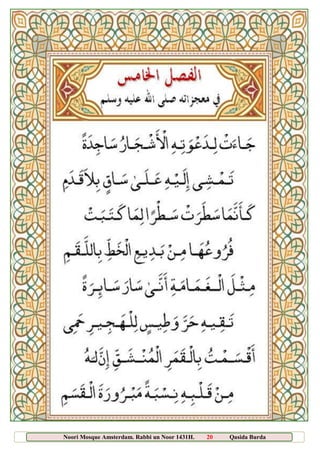 الفصل الخامس
في معجزاته صلى الله عليه وسلم
جَاءَتْ لِدَعْوَتِهِ الْأَشْجَارُ سَاجِدَةً
تَمْشِي إِلَيْهِ عَلَى سَاقٍ بِلَا قَدَمِ
كَأَنَّمَا سَطَرَتْ سَطْرًا لِمَا كَتَبَتْ
فُرُوعُهَا مِنْ بَدِيعِ الْخَطِّ بِاللَّقَمِ
مِثْلَ الْغَمَامَةِ أَنَّى سَارَ سَائِرَةً
تَقِيهِ حَرَّ وَطِيسٍ لِلْهَجِيرِ حَمِي
أَقْسَمْتُ بِالْقَمَرِ الْمُنْشَقِّ إِنَّ لَهُ
مِنْ قَلْبِهِ نِسْبَةً مَبْرُورَةَ الْقَسَمِ
Noori Mosque Amsterdam. Rabbi un Noor 1431H. 20 Qasida Burda